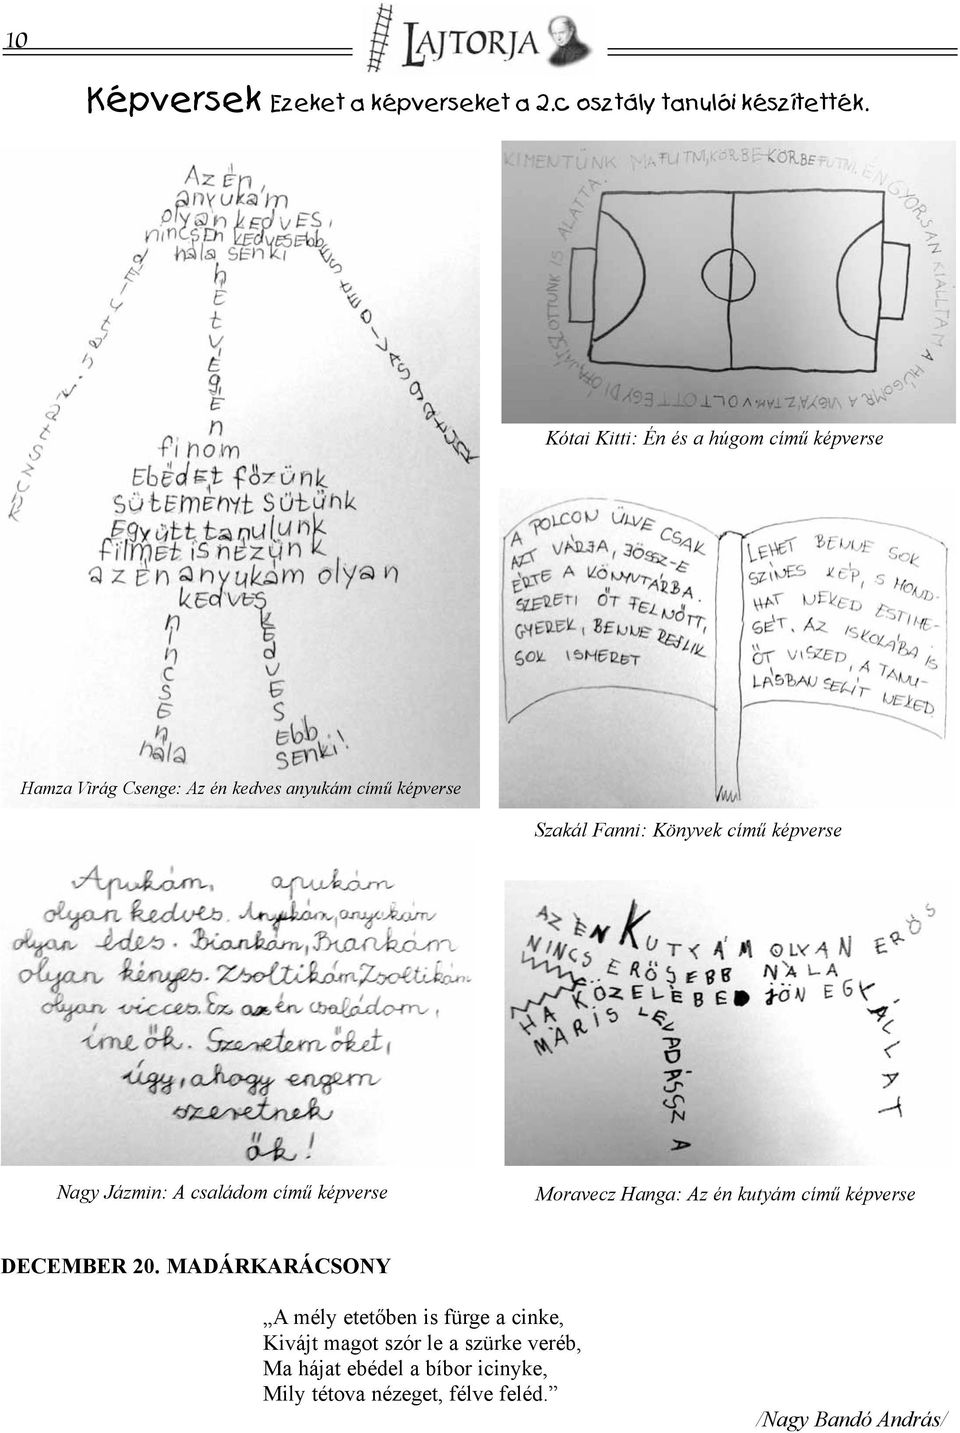 10
LAJTORJA
Képversek Ezeket a képverseket a 2.c osztály tanulói készítették.
Az én
anyukám
olyan kedves,
nincsen kedvesebb
nála senki
hétvégén
finom
Ebédet főzünk
süteményt sütünk
Együtt tanulunk
filmet is nézünk
az én anyukám olyan
kedves
nincsen
nála
kedvesebb
senki!
Hamza Virág Csenge: Az én kedves anyukám című képverse
KIMENTÜNK MA FUTNI, KÖRBE KÖRBE FUTNI. ÉN GYORSAN KIÁLLTAM A HÚGOMRA VIGYÁZTAM. VOLT OTT EGY DIÓFA, JÁTSZOTTUNK IS ALATTA.
Kótai Kitti: Én és a húgom című képverse
A POLCON ÜLVE CSAK
AZT VÁRJA, JÖSSZ-E
ÉRTE A KÖNYVTÁRBA.
SZERETI ŐT FELNŐTT,
GYEREK, BENNE REJLIK
SOK ISMERET
LEHET BENNE SOK
SZÍNES KÉP, S MOND-
HAT NEKED ESTI ME-
SÉT. AZ ISKOLÁBA IS
ŐT VISZED, A TANU-
LÁSBAN SEGÍT NEKED.
Szakál Fanni: Könyvek című képverse
Apukám, apukám
olyan kedves. Anyukám, anyukám
olyan édes. Biankám, Biankám
olyan kényes. Zsoltikám Zsoltikám
olyan vicces. Ez az én családom,
íme ők. Szeretem őket,
úgy, ahogy engem
szeretnek
ők!
Nagy Jázmin: A családom című képverse
AZ ÉN KUTYÁM OLYAN ERŐS
NINCS ERŐSEBB NÁLA
HA KÖZELÉBE JÖN EGY ÁLLAT
MÁRIS LEVADÁSSZA
Moravecz Hanga: Az én kutyám című képverse
DECEMBER 20. MADÁRKARÁCSONY
„A mély etetőben is fürge a cinke,
Kivájt magot szór le a szürke veréb,
Ma hájat ebédel a bíbor icinyke,
Mily tétova nézeget, félve feléd.”
/Nagy Bandó András/